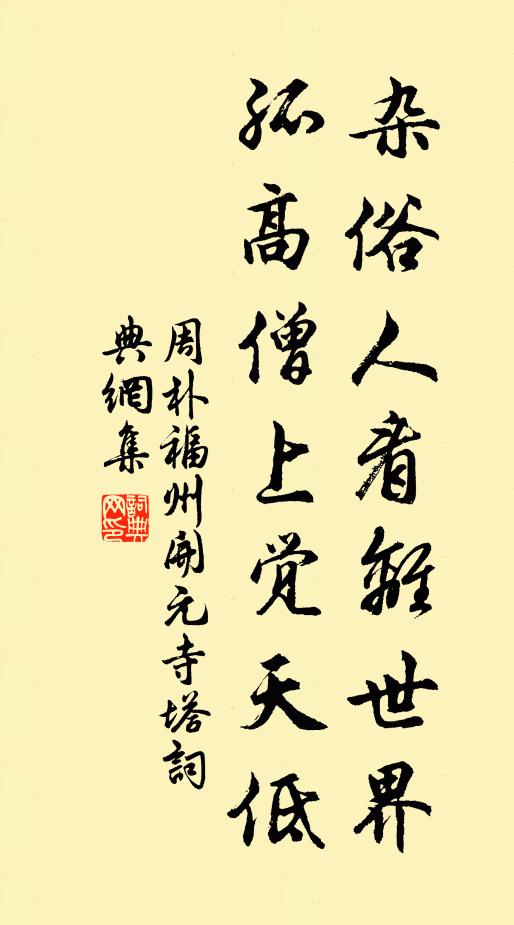 杂俗人看離世界
孤高僧上觉天低
周朴福州開元寺塔詞
典網集
詞典
网印